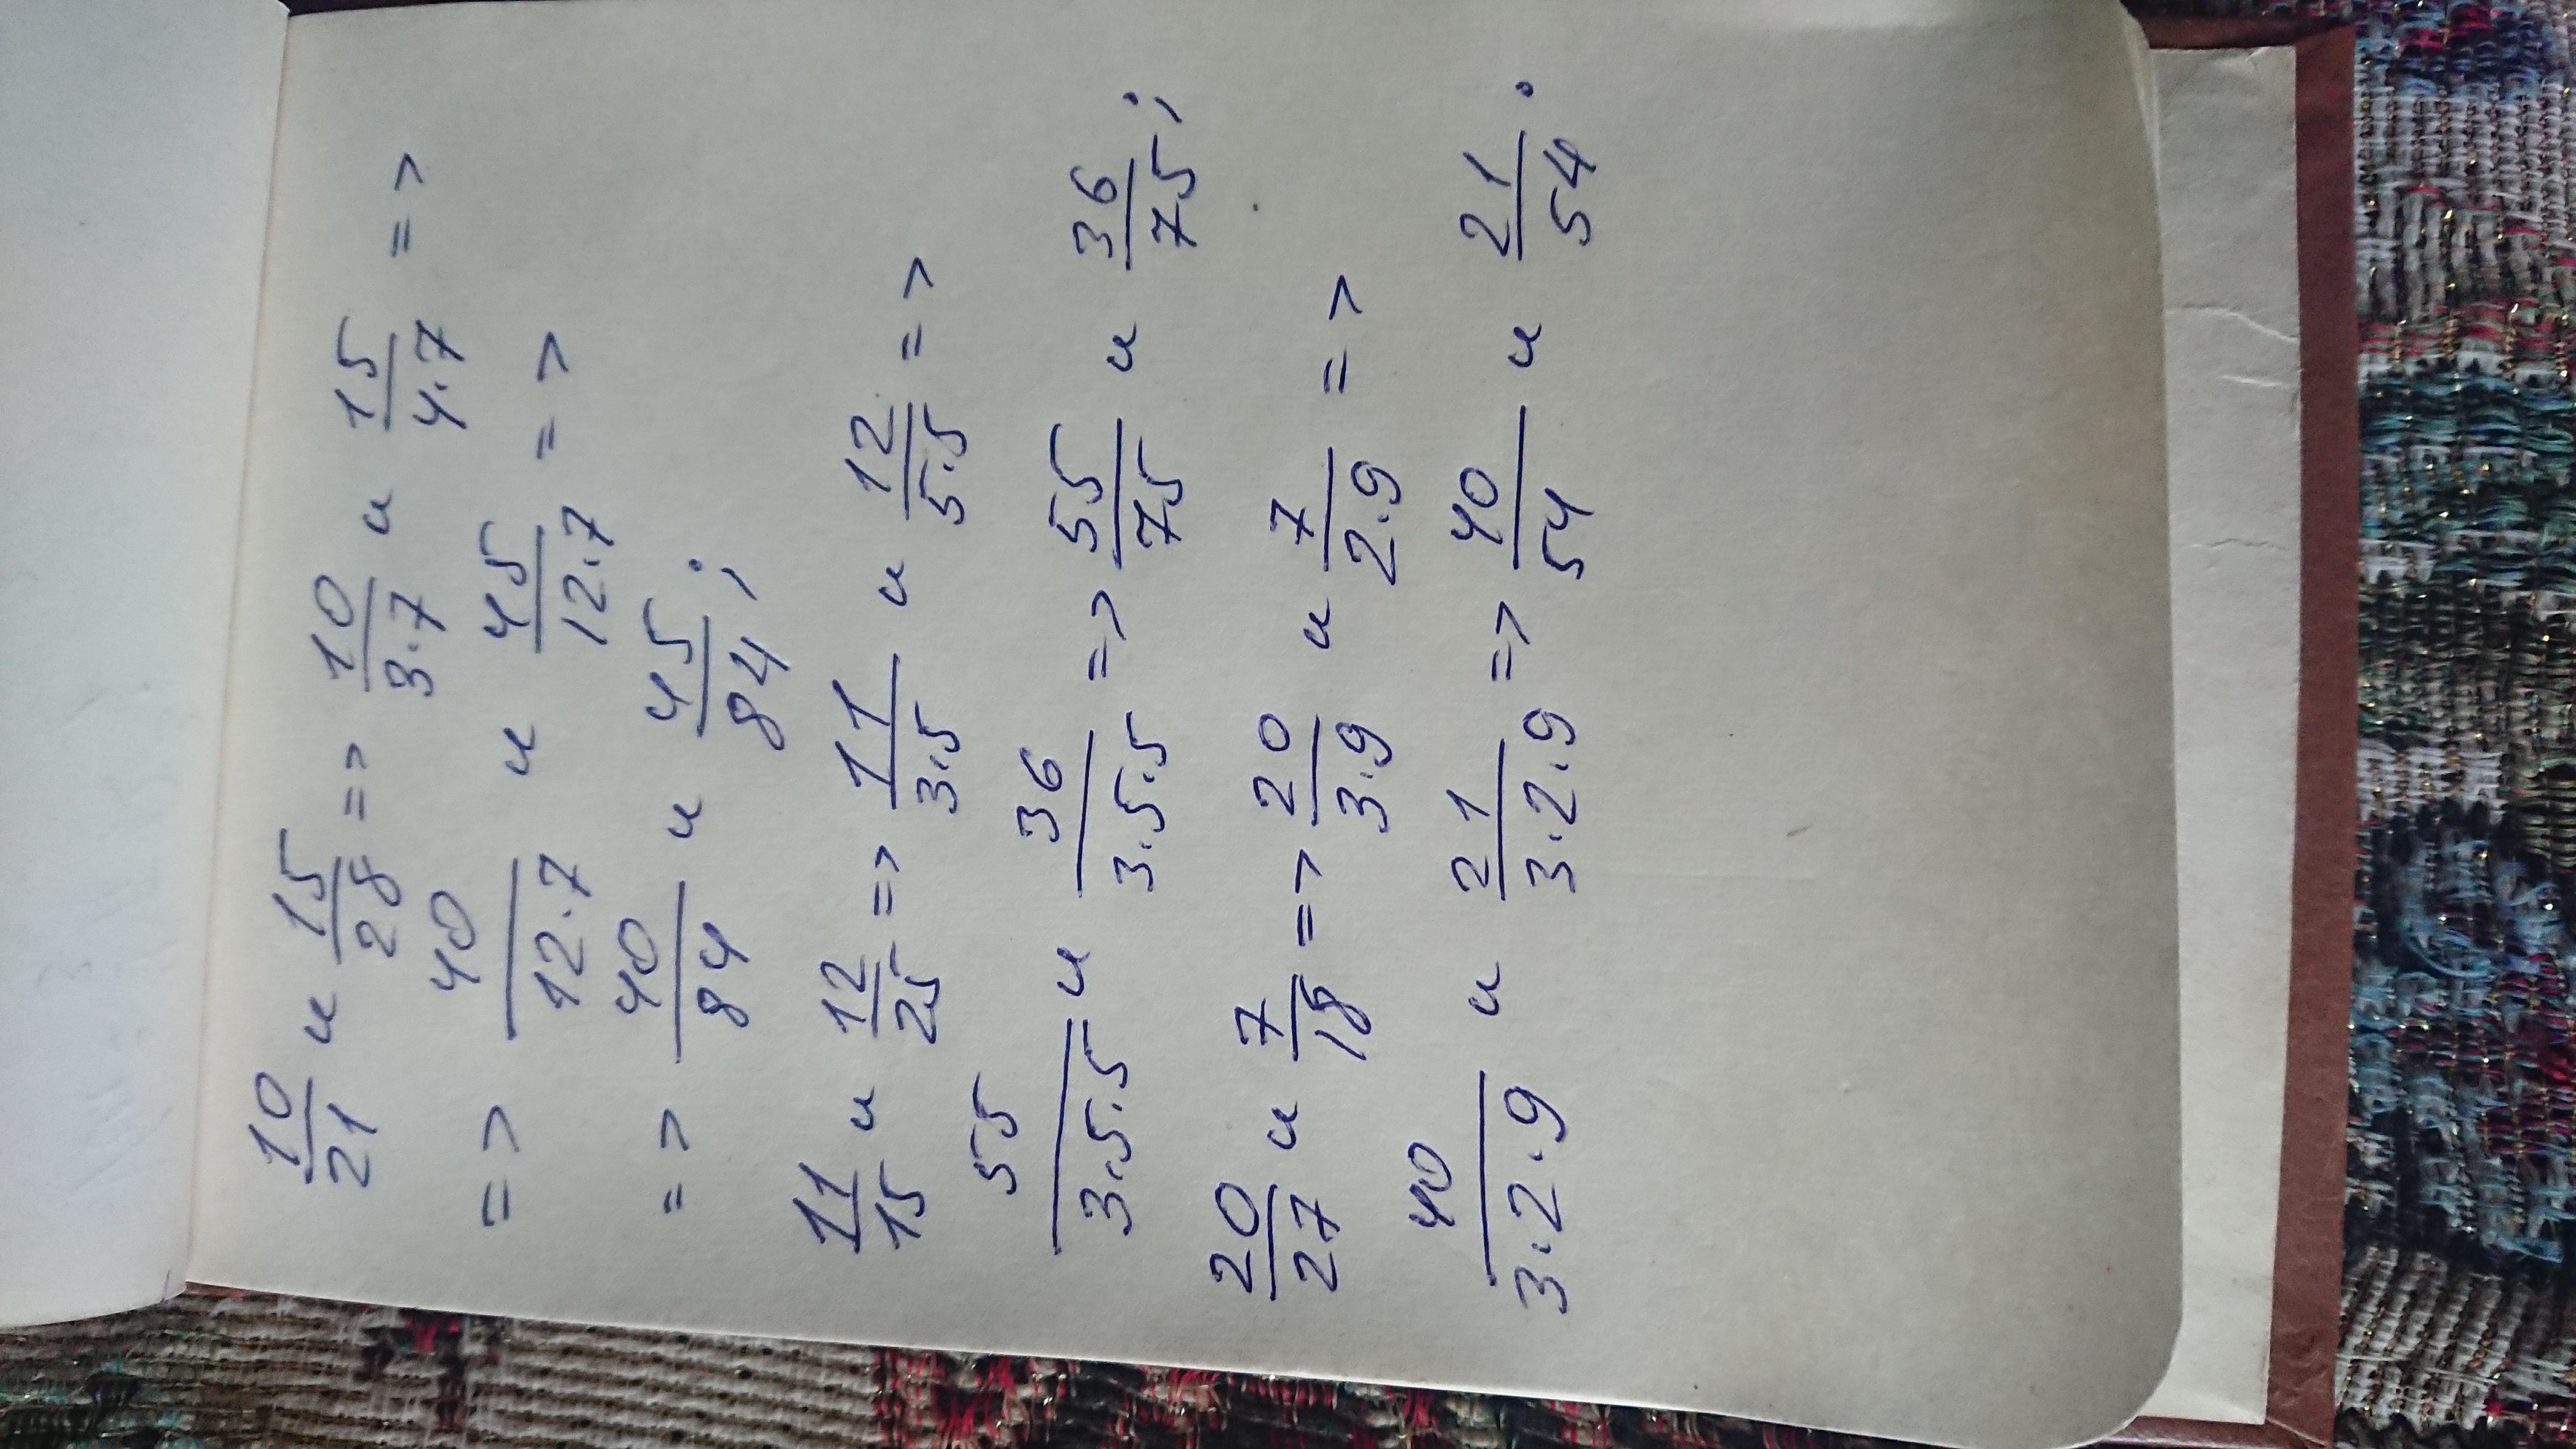 10/21 и 15/28 => 10/3·7 и 15/4·7 =>
=> 40/12·7 и 45/12·7 =>
=> 40/84 и 45/84;
11/15 и 12/25 => 11/3·5 и 12/5·5 =>
55/3·5·5 и 36/3·5·5 => 55/75 и 36/75;
20/27 и 7/18 => 20/3·9 и 7/2·9 =>
40/3·2·9 и 21/3·2·9 => 40/54 и 21/54.